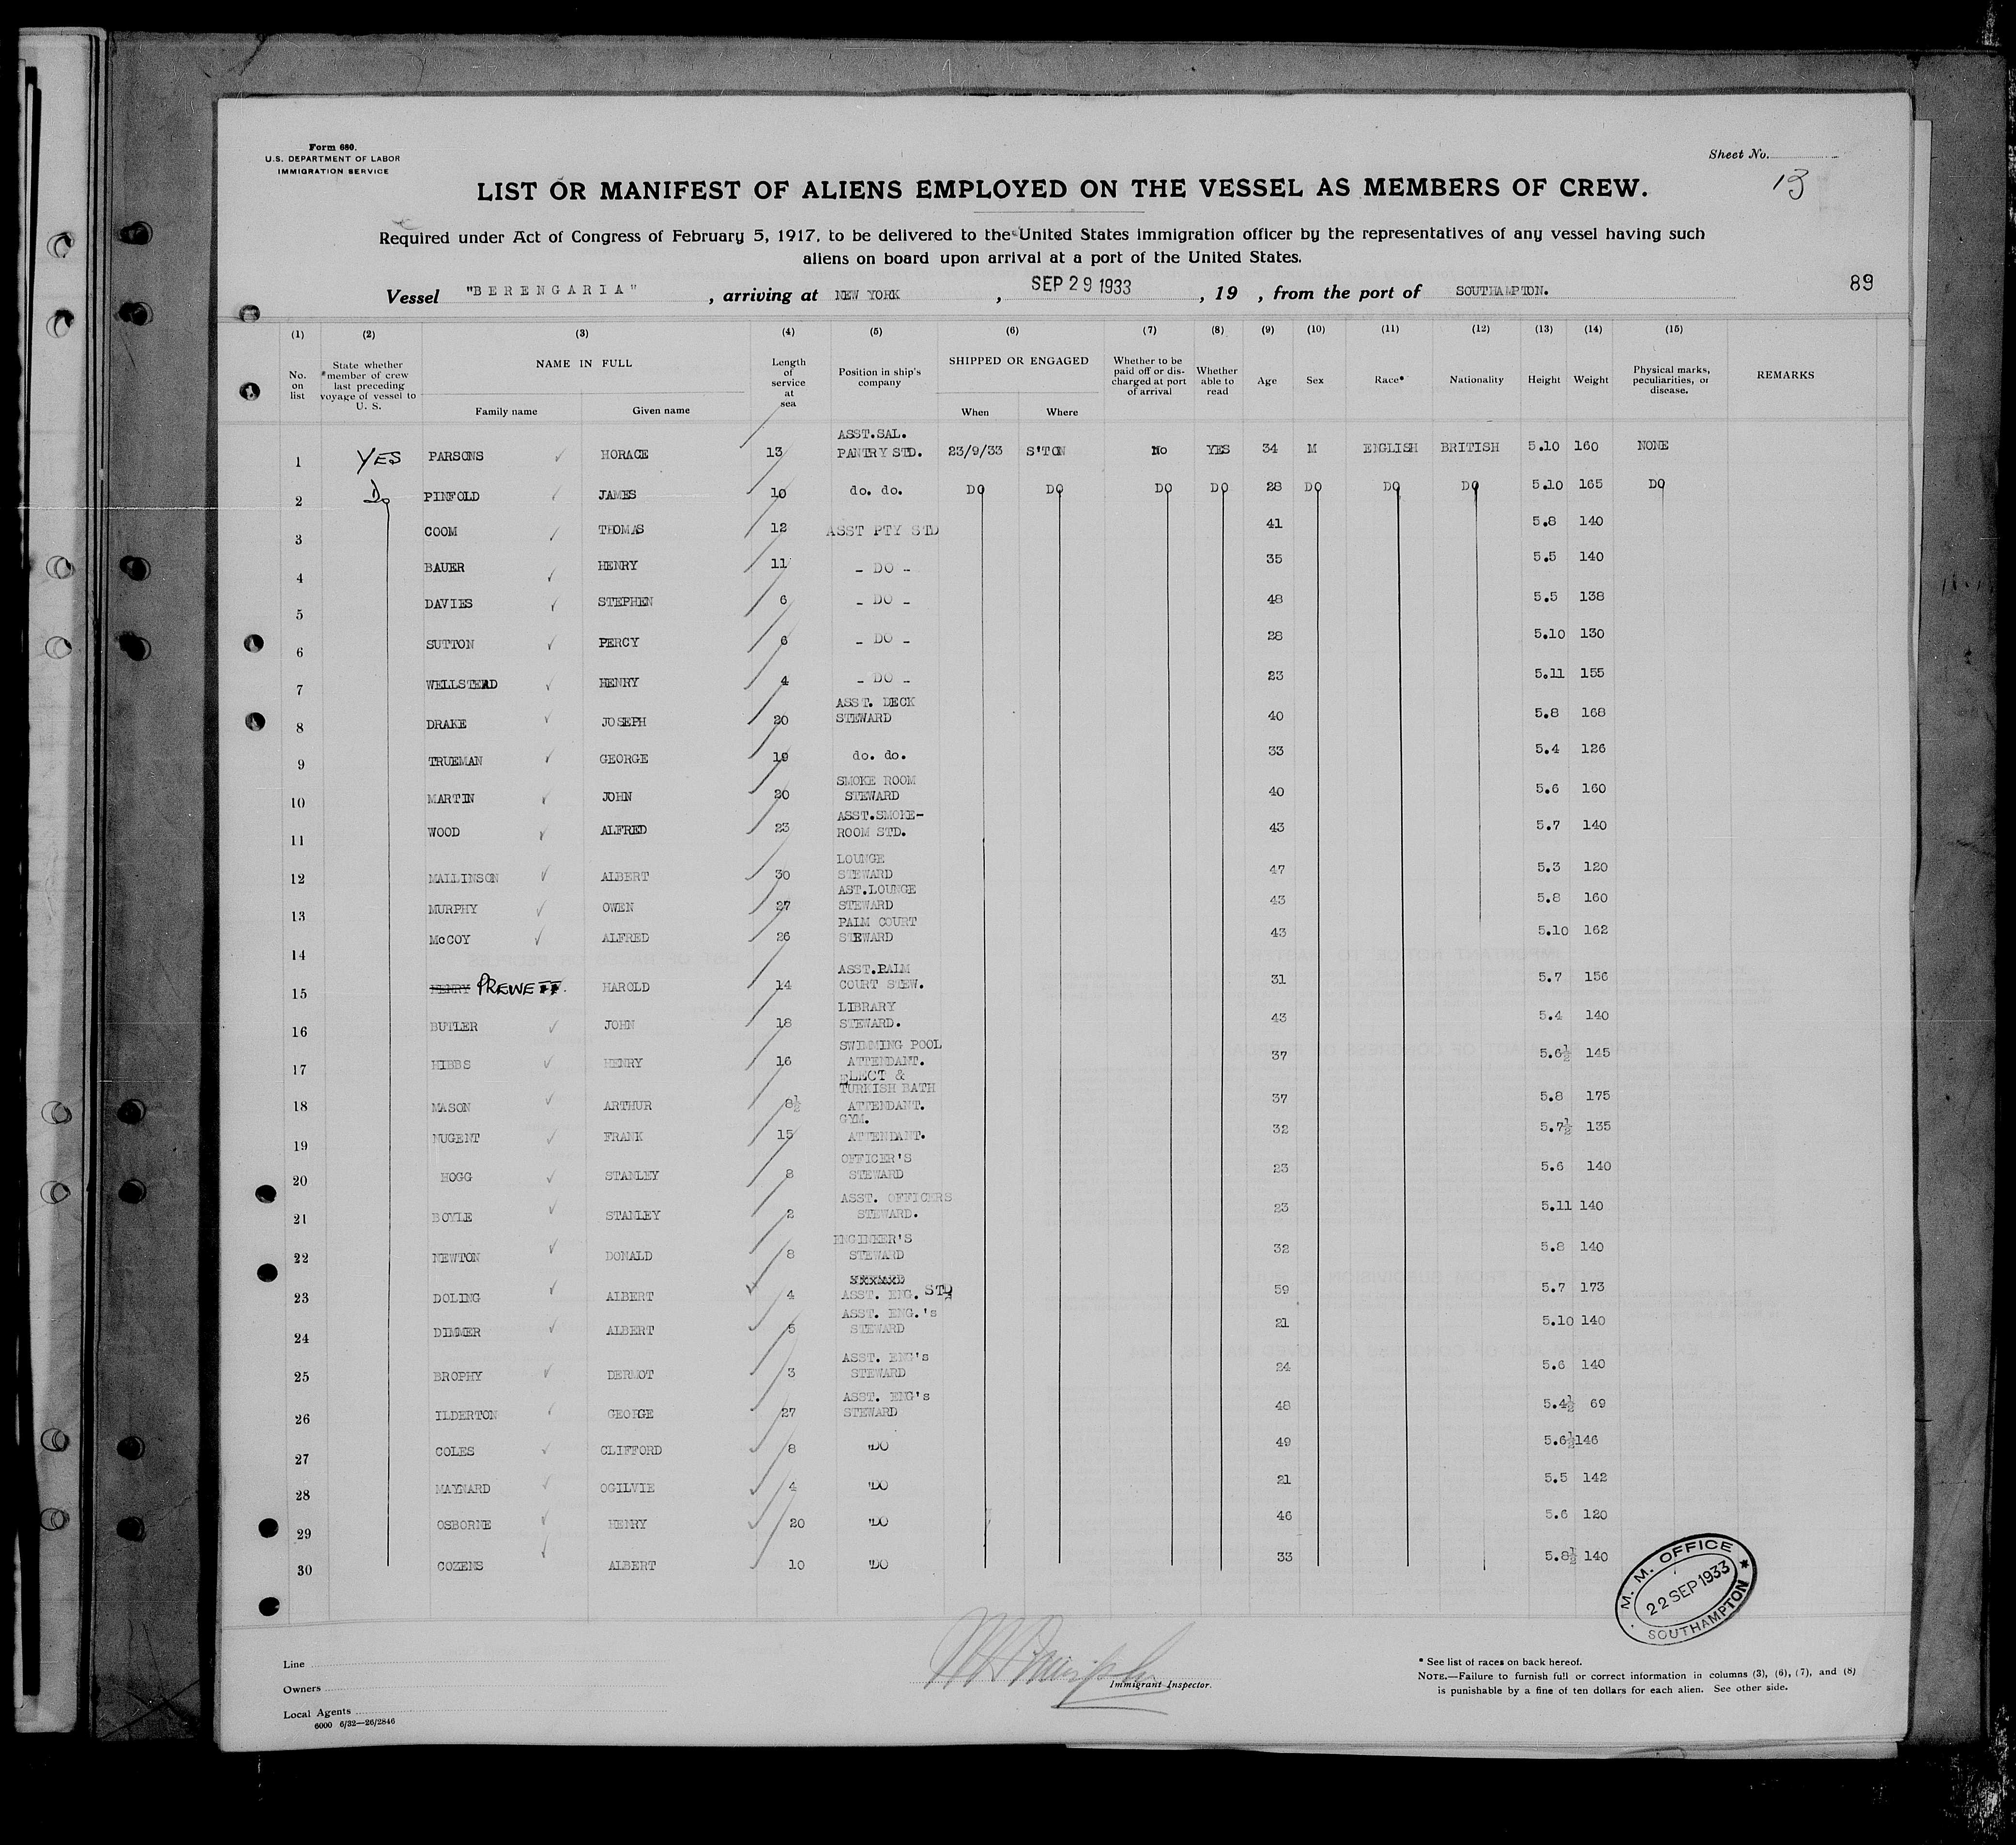 Form 680.
U.S. DEPARTMENT OF LABOR
IMMIGRATION SERVICE
Sheet No.
13
LIST OR MANIFEST OF ALIENS EMPLOYED ON THE VESSEL AS MEMBERS OF CREW.
Required under Act of Congress of February 5, 1917, to be delivered to the United States immigration officer by the representatives of any vessel having such
aliens on board upon arrival at a port of the United States.
Vessel "BERENGARIA", arriving at NEW YORK, SEP 29 1933, 19 , from the port of SOUTHAMPTON.
89
(1) (2) (3) (4) (5) (6) (7) (8) (9) (10) (11) (12) (13) (14) (15)
No. on list
State whether *member of crew last preceding voyage of vessel to U. S.
NAME IN FULL
Family name Given name
Length of service at sea
Position in ship's company
SHIPPED OR ENGAGED
When Where
Whether to be paid off or discharged at port of arrival
Whether able to read
Age Sex Race* Nationality Height Weight
Physical marks, peculiarities, or disease.
REMARKS
1 YES PARSONS HORACE 13 ASST.SAL. PANTRY STD. 23/9/33 S'TON No YES 34 M ENGLISH BRITISH 5.10 160 NONE
2 Do PINFOLD JAMES 10 do. do. DO DO DO DO 28 DO DO DO 5.10 165 DO
3 COOM THOMAS 12 ASST PTY STD 41 5.8 140
4 BAUER HENRY 11 - DO - 35 5.5 140
5 DAVIES STEPHEN 6 - DO - 48 5.5 138
6 SUTTON PERCY 6 - DO - 28 5.10 130
7 WELLSTEAD HENRY 4 - DO - 23 5.11 155
8 DRAKE JOSEPH 20 ASST. DECK STEWARD 40 5.8 168
9 TRUEMAN GEORGE 19 do. do. 33 5.4 126
10 MARTIN JOHN 20 SMOKE ROOM STEWARD 40 5.6 160
11 WOOD ALFRED 23 ASST.SMOKE-ROOM STD. 43 5.7 140
12 MALLINSON ALBERT 30 LOUNGE STEWARD 47 5.3 120
13 MURPHY OWEN 27 AST.LOUNGE STEWARD 43 5.8 160
14 McCOY ALFRED 26 PALM COURT STEWARD 43 5.10 162
15 HENRY PREWETT. HAROLD 14 ASST.PALM COURT STEW. 31 5.7 156
16 BUTLER JOHN 18 LIBRARY STEWARD. 43 5.4 140
17 HIBBS HENRY 16 SWIMMING POOL ATTENDANT. 37 5.6½ 145
18 MASON ARTHUR 8½ ELECT & TURKISH BATH ATTENDANT. 37 5.8 175
19 NUGENT FRANK 15 GYM. ATTENDANT. 32 5.7½ 135
20 HOGG STANLEY 8 OFFICER'S STEWARD 23 5.6 140
21 BOYLE STANLEY 2 ASST. OFFICERS STEWARD. 23 5.11 140
22 NEWTON DONALD 8 ENGINEER'S STEWARD 32 5.8 140
23 DOLING ALBERT 4 ASST. ENG. STD 59 5.7 173
24 DIMMER ALBERT 5 ASST. ENG.'s STEWARD 21 5.10 140
25 BROPHY DERMOT 3 ASST. ENG's STEWARD 24 5.6 140
26 ILDERTON GEORGE 27 ASST. ENG's STEWARD 48 5.4½ 69
27 COLES CLIFFORD 8 "DO 49 5.6½ 146
28 MAYNARD OGILVIE 4 "DO 21 5.5 142
29 OSBORNE HENRY 20 "DO 46 5.6 120
30 COZENS ALBERT 10 "DO 33 5.8½ 140
M. M. OFFICE
22 SEP 1933
SOUTHAMPTON
Line
Owners
Local Agents
6000 6/32—26/2846
Immigrant Inspector.
* See list of races on back hereof.
NOTE.—Failure to furnish full or correct information in columns (3), (6), (7), and (8)
is punishable by a fine of ten dollars for each alien. See other side.